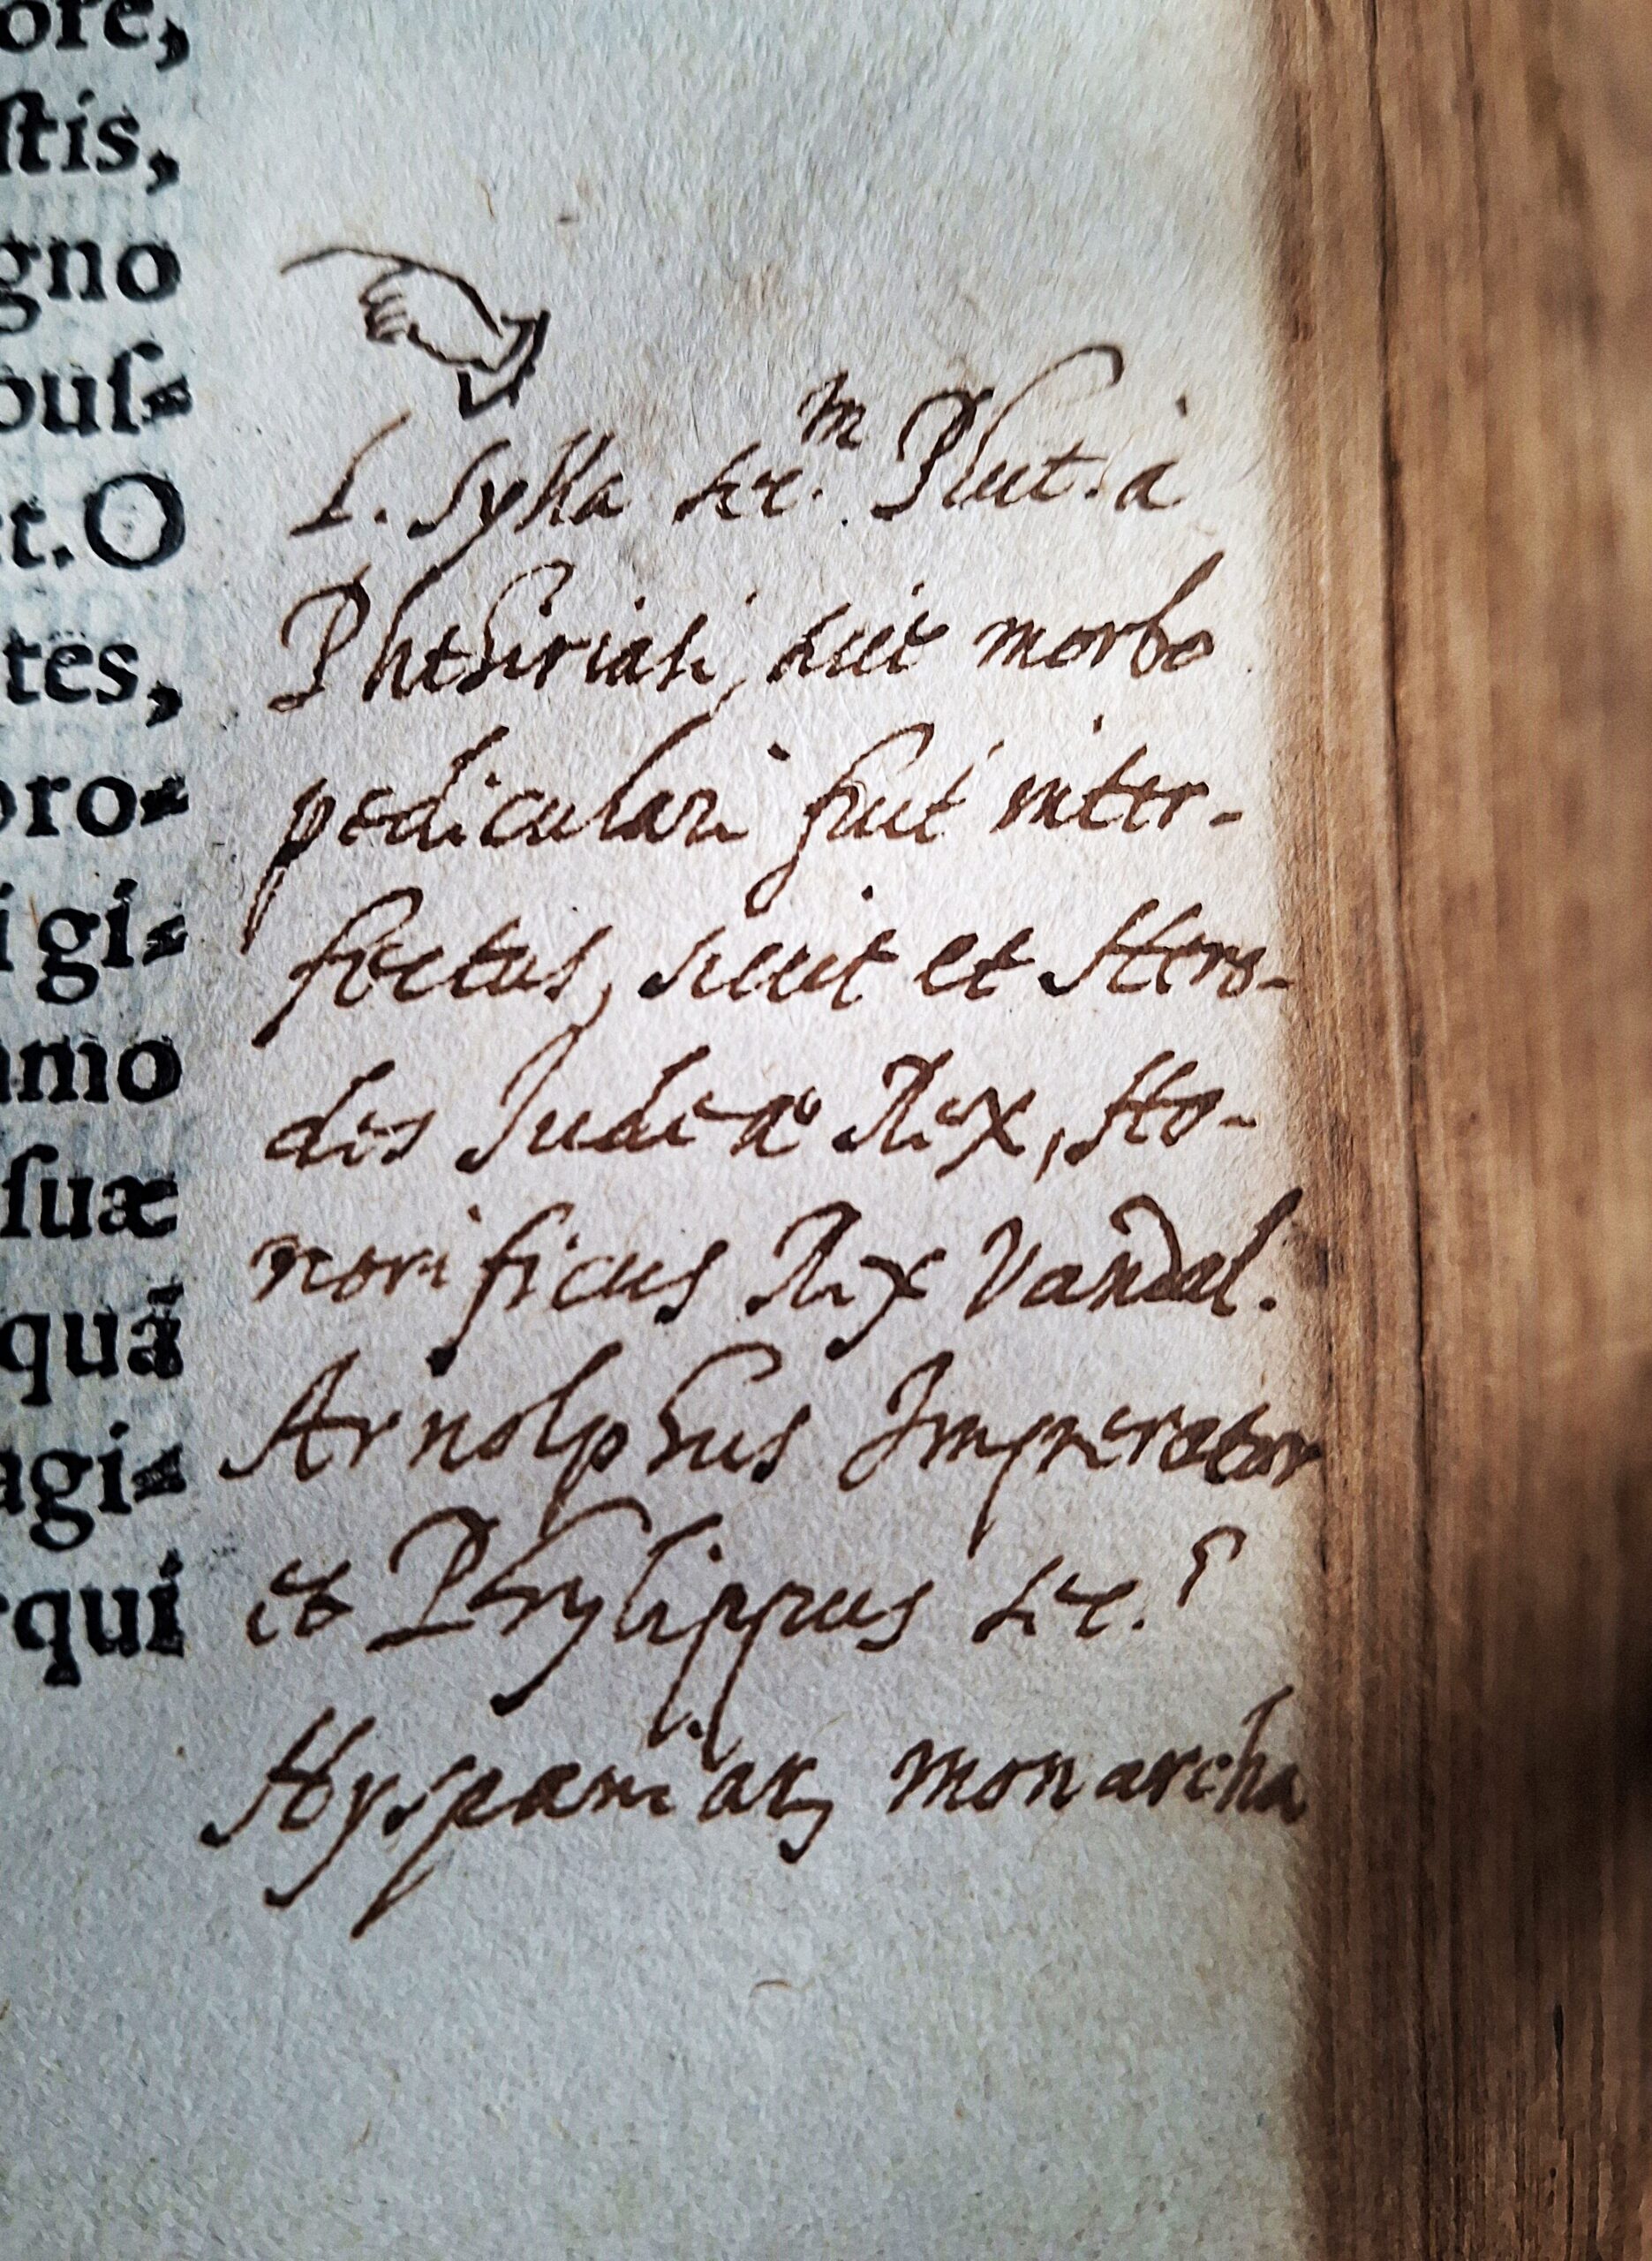 ore,
ſtis,
gno
ouſ-
t. O
tës,
pro-
i gi-
mo
ſuæ
quã
agi-
qui
L. Sylla sec.m Plut. à
Phthiriasi, siue morbo
pediculari fuit inter-
fectus, sicut et Hero-
des Judeæ Rex, Ho-
norificus Rex Vandal.
Arnolphus Imperator
et Phylippus sec.s
Hyspaniarꝝ monarcha